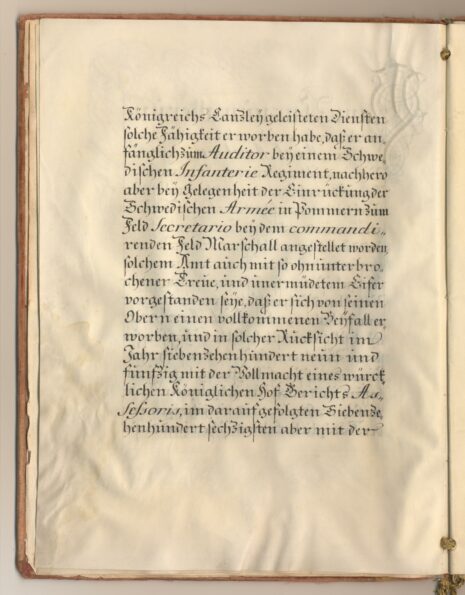 Königreichs Canzley geleisteten Diensten
solche Fähigkeit erworben habe, daß er an,
fänglich zum Auditor bey einem Schwe,
dischen Infanterie Regiment, nachhero
aber bey Gelegenheit der Einrückung der
Schwedischen Armée in Pommern zum
Feld Secretario bey dem commandi,,
renden Feld Marschall angestellet worden,
solchem Amt auch mit so ohnunterbro,
chener Treüe, und unermüdetem Eifer
vorgestanden seÿe, daß er sich von seinen
Obern einen vollkommenen Beyfall er,
worben, und in solcher Rucksicht im
Jahr siebenzehenhundert neun und
fünfzig mit der Vollmacht eines würck,
lichen Königlichen Hof Berichts As,
sessoris, im darauf gefolgten Siebenze,
henhundert sechzigsten aber mit der